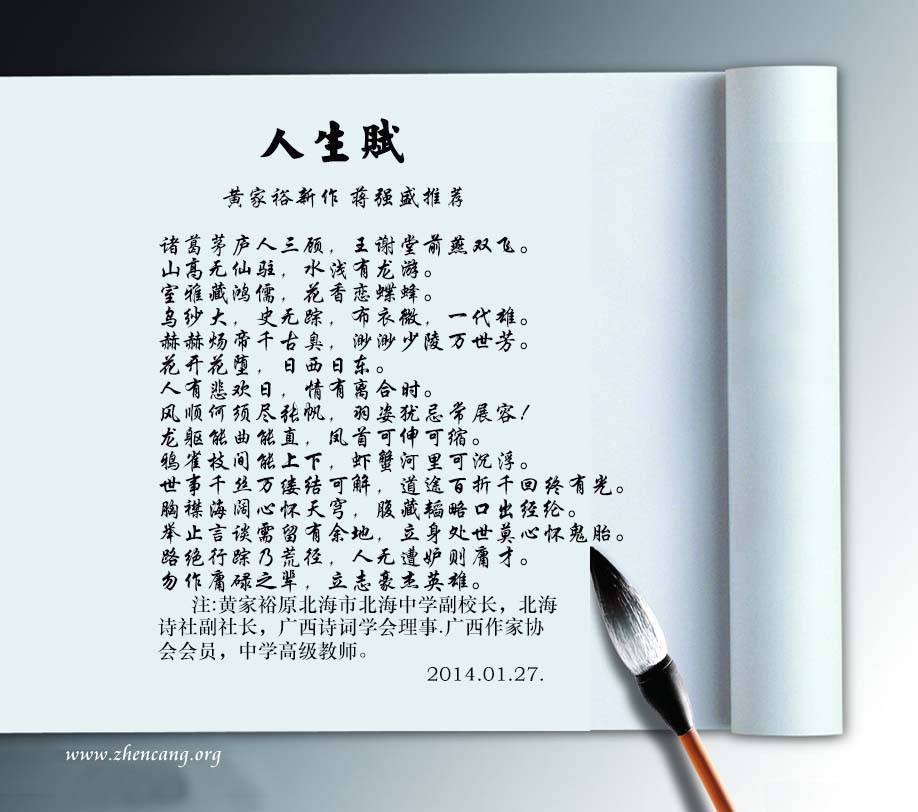 人生赋
黄家裕新作 蒋强盛推荐
诸葛茅庐人三顾，王谢堂前燕双飞。
山高无仙驻，水浅有龙游。
室雅藏鸿儒，花香恋蝶蜂。
乌纱大，史无踪，布衣微，一代雄。
赫赫炀帝千古臭，渺渺少陵万世芳。
花开花堕，日西日东。
人有悲欢日，情有离合时。
风顺何须尽张帆，羽姿犹忌常展容！
龙躯能曲能直，凤首可伸可缩。
鸦雀枝间能上下，虾蟹河里可沉浮。
世事千丝万缕结可解，道途百折千回终有光。
胸襟海阔心怀天穹，腹藏韬略口出经纶。
举止言谈需留有余地，立身处世莫心怀鬼胎。
路绝行踪乃荒径，人无遭妒则庸才。
勿作庸碌之辈，立志豪杰英雄。
注:黄家裕原北海市北海中学副校长，北海
诗社副社长，广西诗词学会理事.广西作家协
会会员，中学高级教师。
2014.01.27.
www.zhencang.org